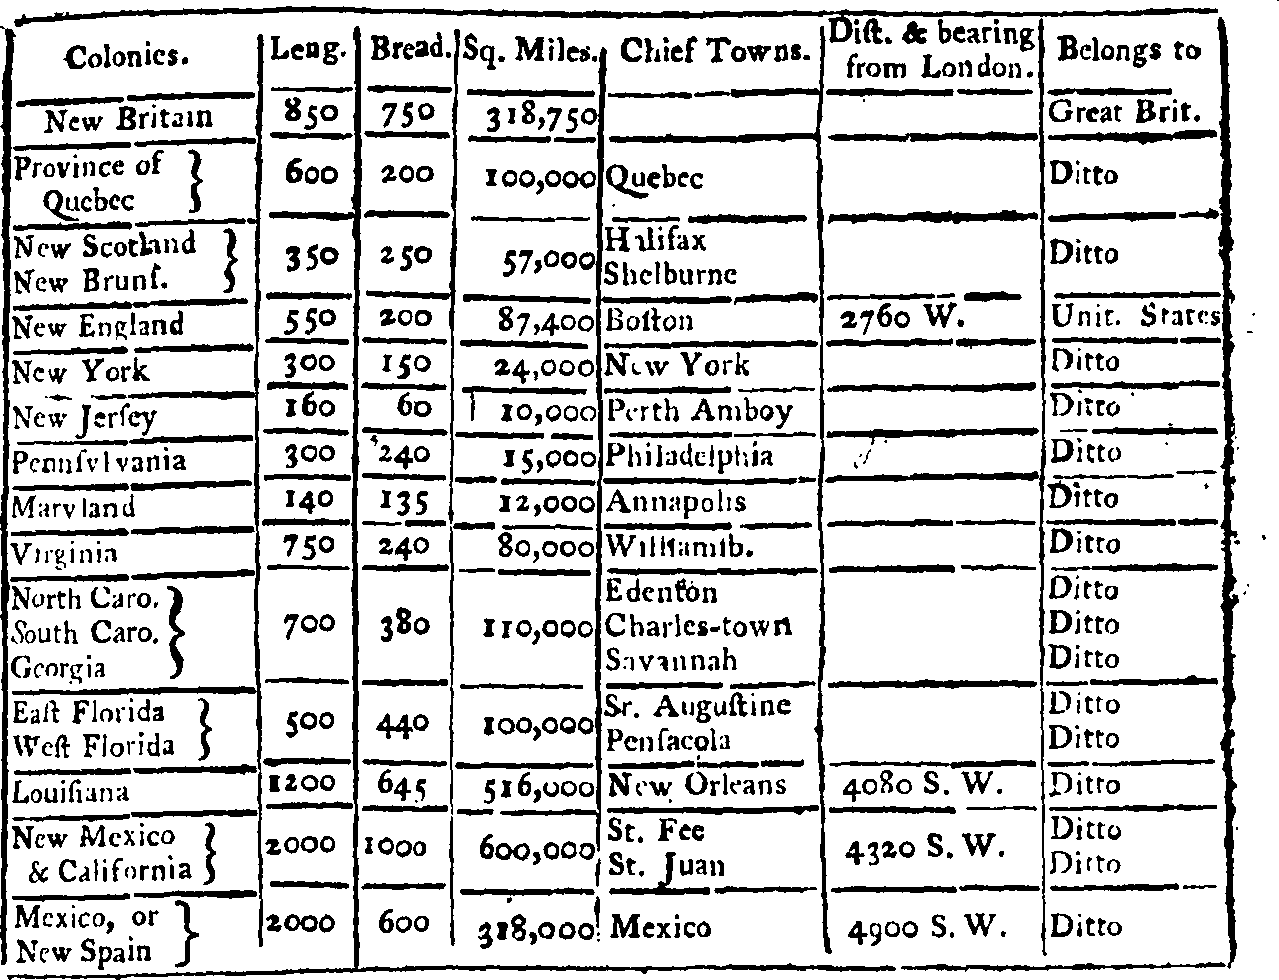 Colonies. Leng. Bread. Sq. Miles. Chief Towns. Dist. & bearing from London. Belongs to
New Britain 850 750 318,750 Great Brit.
Province of
Quebec 600 200 100,000 Quebec Ditto
New Scotland
New Brunſ. 350 250 57,000 Halifax
Shelburne Ditto
New England 550 200 87,400 Boſton 2760 W. Unit. States
New York 300 150 24,000 New York Ditto
New Jerſey 160 60 10,000 Perth Amboy Ditto
Pennſylvania 300 240 15,000 Philadelphia Ditto
Maryland 140 135 12,000 Annapolis Ditto
Virginia 750 240 80,000 Williamſb. Ditto
North Caro.
South Caro.
Georgia 700 380 110,000 Edenton
Charles-town
Savannah Ditto
Ditto
Ditto
Eaſt Florida
Weſt Florida 500 440 100,000 St. Auguſtine
Penſacola Ditto
Ditto
Louiſiana 1200 645 516,000 New Orleans 4080 S. W. Ditto
New Mexico
& California 2000 1000 600,000 St. Fee
St. Juan 4320 S. W. Ditto
Ditto
Mexico, or
New Spain 2000 600 318,000 Mexico 4900 S. W. Ditto